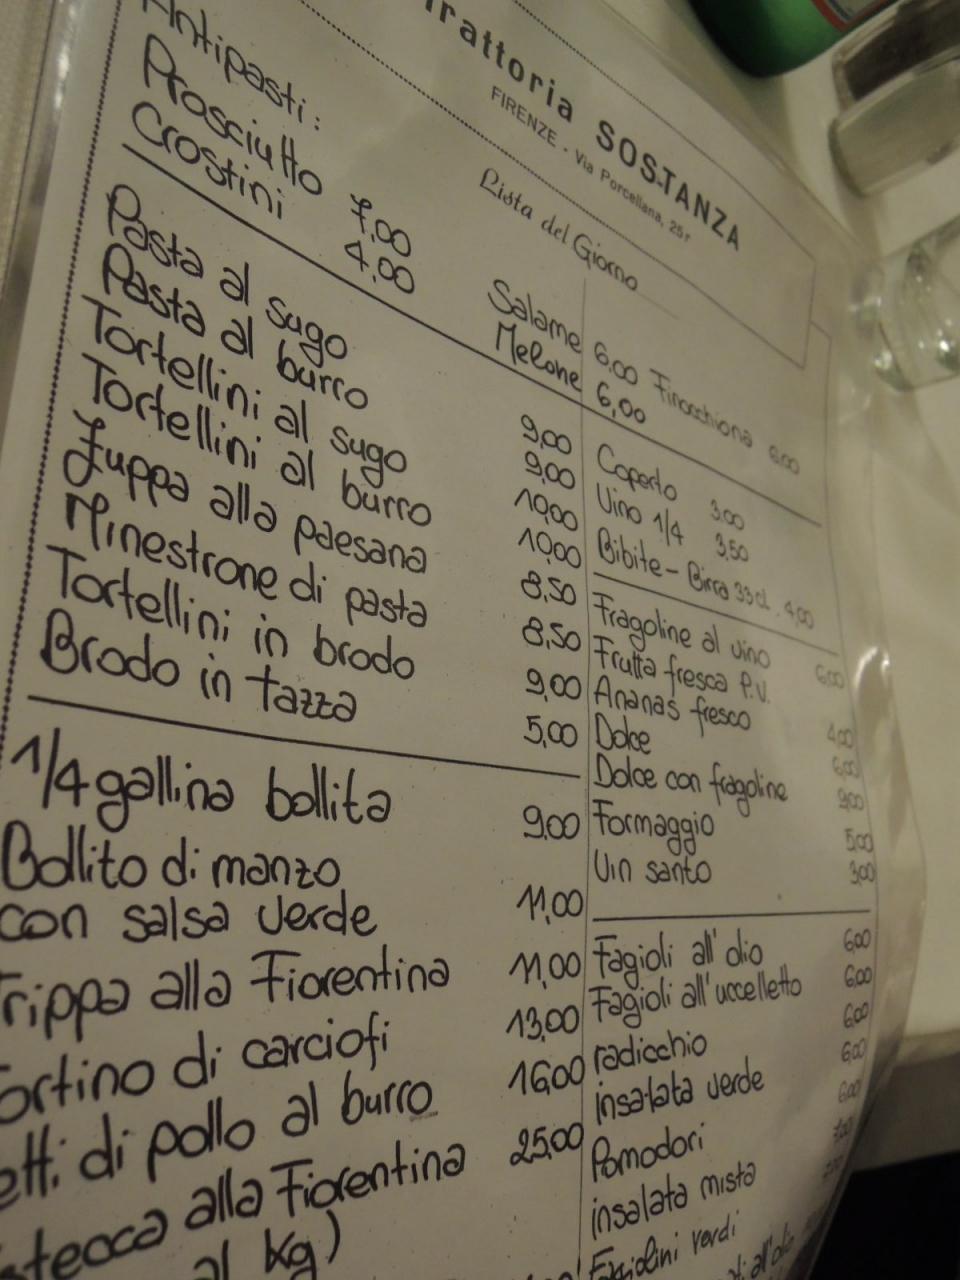 Trattoria SOSTANZA
FIRENZE - Via Porcellana, 25r
Lista del Giorno
Antipasti:
Prosciutto 7,00 Salame 6,00 Finocchiona 6,00
Crostini 4,00 Melone 6,00
Pasta al sugo 9,00
Pasta al burro 9,00
Tortellini al sugo 10,00
Tortellini al burro 10,00
Zuppa alla paesana 8,50
Minestrone di pasta 8,50
Tortellini in brodo 9,00
Brodo in tazza 5,00
1/4 gallina bollita 9,00
Bollito di manzo
con salsa verde 11,00
Trippa alla Fiorentina 11,00
ortino di carciofi 13,00
etti di pollo al burro 16,00
stecca alla Fiorentina 25,00
al Kg)
Coperto 3,00
Vino 1/4 3,50
Bibite - Birra 33 cl. 4,00
Fragoline al vino 6,00
Frutta fresca P.V.
Ananas fresco 4,00
Dolce 6,00
Dolce con fragoline 9,00
Formaggio 5,00
Vin santo 3,00
Fagioli all'olio 6,00
Fagioli all'uccelletto 6,00
radicchio 6,00
insalata verde 6,00
Pomodori 6,00
insalata mista
Fagiolini verdi
all'olio